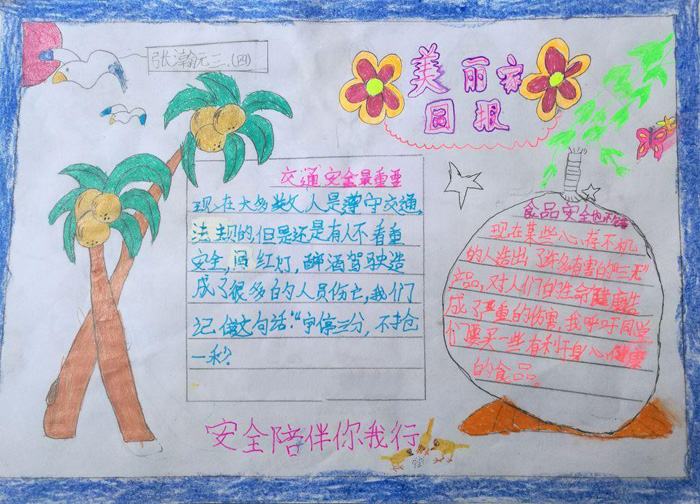 张瀚元三.(四)
美丽家
园报
交通安全最重要
现在大多数人是遵守交通
法规的,但是还是有人不看重
安全,闯红灯,醉酒驾驶造
成了很多的人员伤亡,我们
记做这句话:“宁停三分,不抢
一秒?
食品安全也不容
现在某些心存不机
的人造出了许多有害的“三无”
产品,对人们的生命健康造
成了严重的伤害,我呼吁同学
们要买一些有利于身心健康
的食品。
安全陪伴你我行